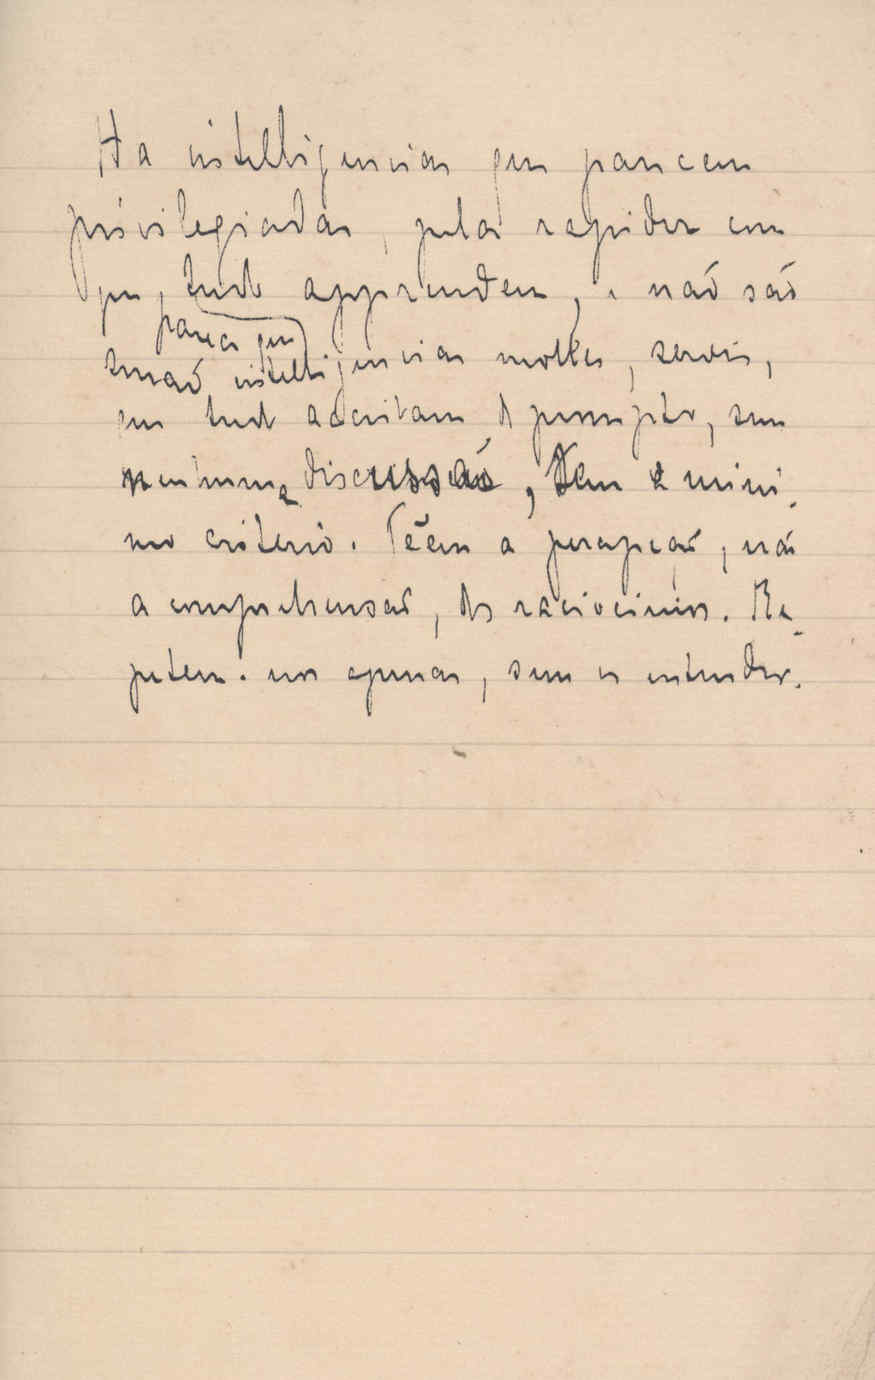 Ha intelligencias que parecem
privilegiadas, pela rapidez com
que tudo apprendem, e não são
senão intelligencias molles, servis,
que tudo acceitam de prompto, sem
nenhuma discussão, sem o mini-
mo criterio. Têem a percepção, não
a comprehensão, dos raciocinios. Re-
petem-nos apenas, sem os entender.